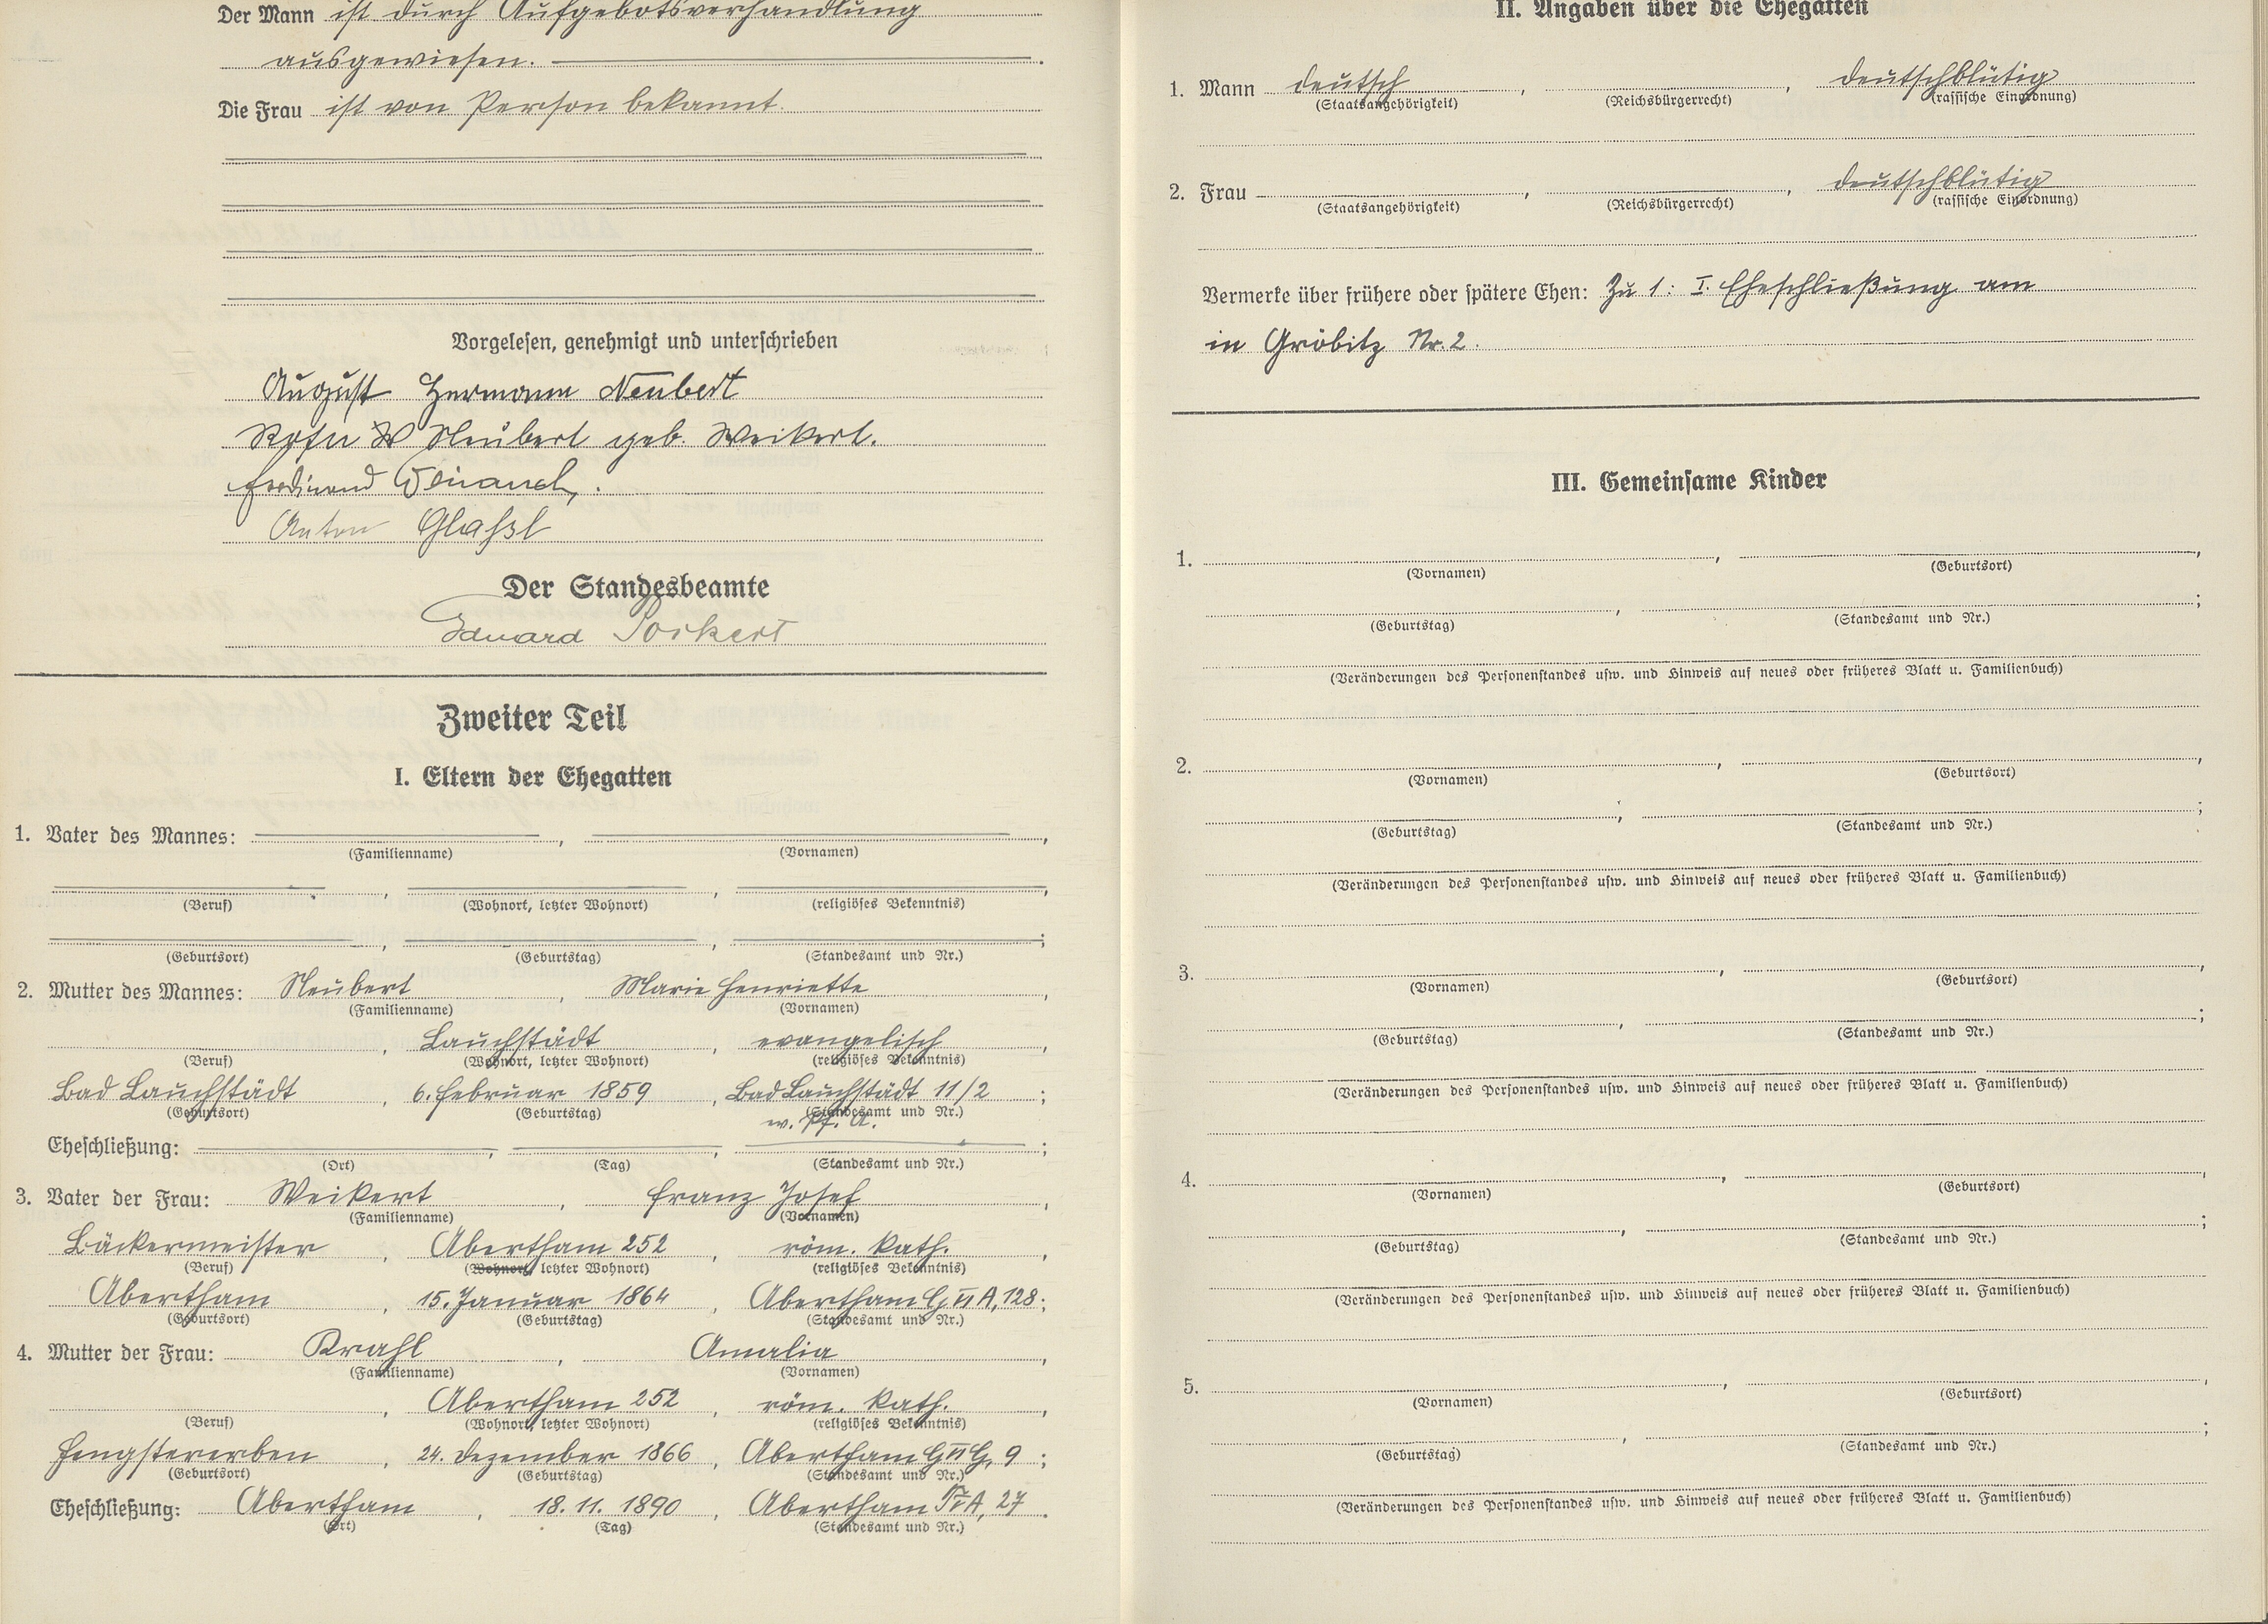 Der Mann ist durch Aufgebotsverhandlung
ausgewiesen.
Die Frau ist von Person bekannt.
Vorgelesen, genehmigt und unterschrieben
August Hermann Neubert
Neubert geb. Weikert.
Ferdinand
Anton Glaßl
Der Standesbeamte
Eduard Porkert
Zweiter Teil
I. Eltern der Ehegatten
1. Vater des Mannes: , ,
(Familienname) (Vornamen)
, , ,
(Beruf) (Wohnort, letzter Wohnort) (religiöses Bekenntnis)
, , ;
(Geburtsort) (Geburtstag) (Standesamt und Nr.)
2. Mutter des Mannes: Neubert , Marie Henriette ,
(Familienname) (Vornamen)
, Lauchstädt , evangelisch ,
(Beruf) (Wohnort, letzter Wohnort) (religiöses Bekenntnis)
Bad Lauchstädt , 6. Februar 1859 , Bad Lauchstädt 11/2 ;
(Geburtsort) (Geburtstag) (Standesamt und Nr.)
w. Pf. A.
Eheschließung: , , ;
(Ort) (Tag) (Standesamt und Nr.)
3. Vater der Frau: Weikert , Franz Josef ,
(Familienname) (Vornamen)
Bäckermeister , Abertham 252 , röm. kath. ,
(Beruf) (Wohnort, letzter Wohnort) (religiöses Bekenntnis)
Abertham , 15. Januar 1864 , Abertham G VI A, 128 ;
(Geburtsort) (Geburtstag) (Standesamt und Nr.)
4. Mutter der Frau: Krahl , Amalia ,
(Familienname) (Vornamen)
, Abertham 252 , röm. kath. ,
(Beruf) (Wohnort, letzter Wohnort) (religiöses Bekenntnis)
Hengstererben , 24. Dezember 1866 , Abertham G VI G, 9 ;
(Geburtsort) (Geburtstag) (Standesamt und Nr.)
Eheschließung: Abertham , 18. 11. 1890 , Abertham A, 27 .
(Ort) (Tag) (Standesamt und Nr.)
II. Angaben über die Ehegatten
1. Mann deutsch , , deutschblütig
(Staatsangehörigkeit) (Reichsbürgerrecht) (rassische Einordnung)
2. Frau , , deutschblütig
(Staatsangehörigkeit) (Reichsbürgerrecht) (rassische Einordnung)
Vermerke über frühere oder spätere Ehen: Zu 1: I. Eheschließung am
in Gröbitz Nr. 2.
III. Gemeinsame Kinder
1. , ,
(Vornamen) (Geburtsort)
, ;
(Geburtstag) (Standesamt und Nr.)
(Veränderungen des Personenstandes usw. und Hinweis auf neues oder früheres Blatt u. Familienbuch)
2. , ,
(Vornamen) (Geburtsort)
, ;
(Geburtstag) (Standesamt und Nr.)
(Veränderungen des Personenstandes usw. und Hinweis auf neues oder früheres Blatt u. Familienbuch)
3. , ,
(Vornamen) (Geburtsort)
, ;
(Geburtstag) (Standesamt und Nr.)
(Veränderungen des Personenstandes usw. und Hinweis auf neues oder früheres Blatt u. Familienbuch)
4. , ,
(Vornamen) (Geburtsort)
, ;
(Geburtstag) (Standesamt und Nr.)
(Veränderungen des Personenstandes usw. und Hinweis auf neues oder früheres Blatt u. Familienbuch)
5. , ,
(Vornamen) (Geburtsort)
, ;
(Geburtstag) (Standesamt und Nr.)
(Veränderungen des Personenstandes usw. und Hinweis auf neues oder früheres Blatt u. Familienbuch)